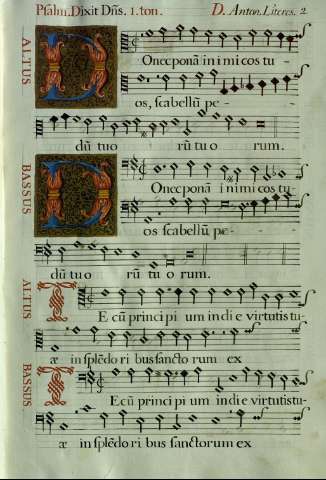 Psalm. Dixit Dñs. 1. ton. D. Anton. Literes. 2
ALTUS
Donec ponã inimicos tu-
os, scabellũ pe-
dũ tuo rũ tuo rum.
BASSUS
Donec ponã inimicos tu-
os scabellũ pe-
dũ tuo rũ tu o rum.
ALTUS
TE cũ principi um in di e virtutis tu-
æ in splẽdo ri bus sancto rum ex
BASSUS
TE cũ prin ci pi um in di e virtutis tu-
æ in splẽdo ri bus sanctorum ex